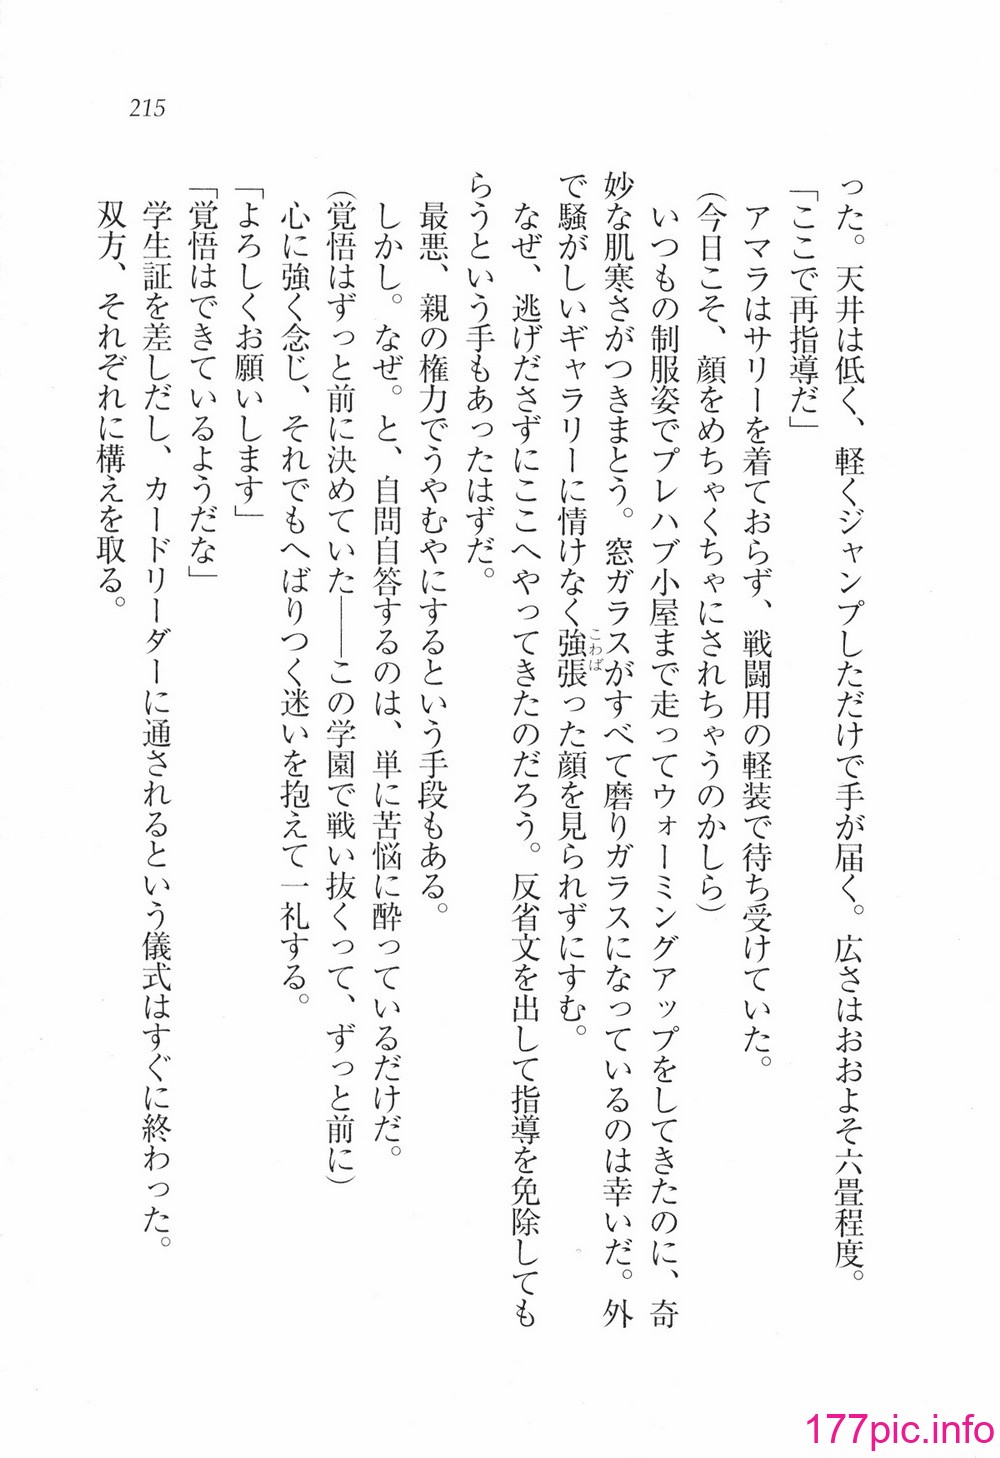 215
った。天井は低く、軽くジャンプしただけで手が届く。広さはおおよそ六畳程度。
「ここで再指導だ」
アマラはサリーを着ておらず、戦闘用の軽装で待ち受けていた。
（今日こそ、顔をめちゃくちゃにされちゃうのかしら）
いつもの制服姿でプレハブ小屋まで走ってウォーミングアップをしてきたのに、奇
妙な肌寒さがつきまとう。窓ガラスがすべて磨りガラスになっているのは幸いだ。外
で騒がしいギャラリーに情けなく強張った顔を見られずにすむ。
こわば
なぜ、逃げださずにここへやってきたのだろう。反省文を出して指導を免除しても
らうという手もあったはずだ。
最悪、親の権力でうやむやにするという手段もある。
しかし。なぜ。と、自問自答するのは、単に苦悩に酔っているだけだ。
（覚悟はずっと前に決めていた――この学園で戦い抜くって、ずっと前に）
心に強く念じ、それでもへばりつく迷いを抱えて一礼する。
「よろしくお願いします」
「覚悟はできているようだな」
学生証を差しだし、カードリーダーに通されるという儀式はすぐに終わった。
双方、それぞれに構えを取る。
177pic.info